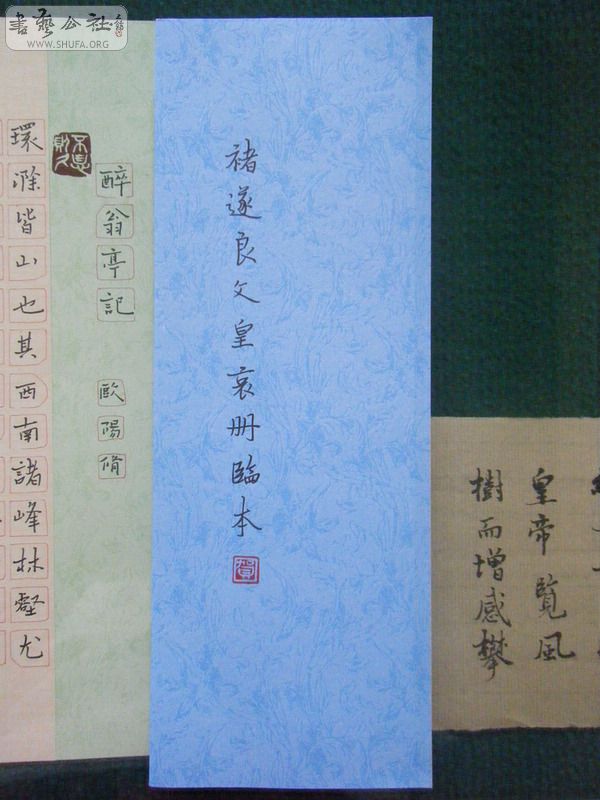 書藝公社
WWW.SHUFA.ORG
皇帝覽風
樹而增感攀
褚遂良文皇哀册臨本
醉翁亭記 歐陽脩
環滁皆山也其西南諸峰林壑尤